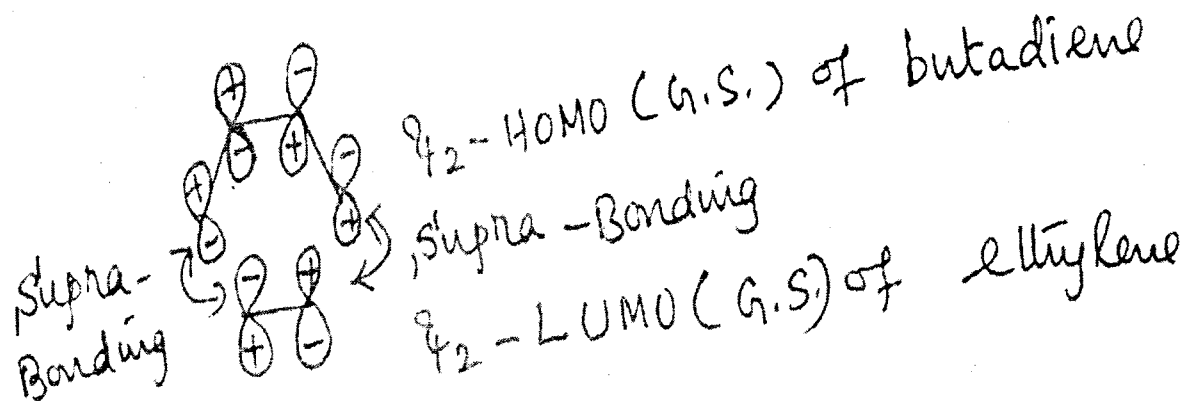 + -
- +
+ -
- +
Ψ2-HOMO (G.S.) of butadiene
Supra-Bonding
Supra-Bonding
- +
+ -
Ψ2-LUMO (G.S.) of ethylene